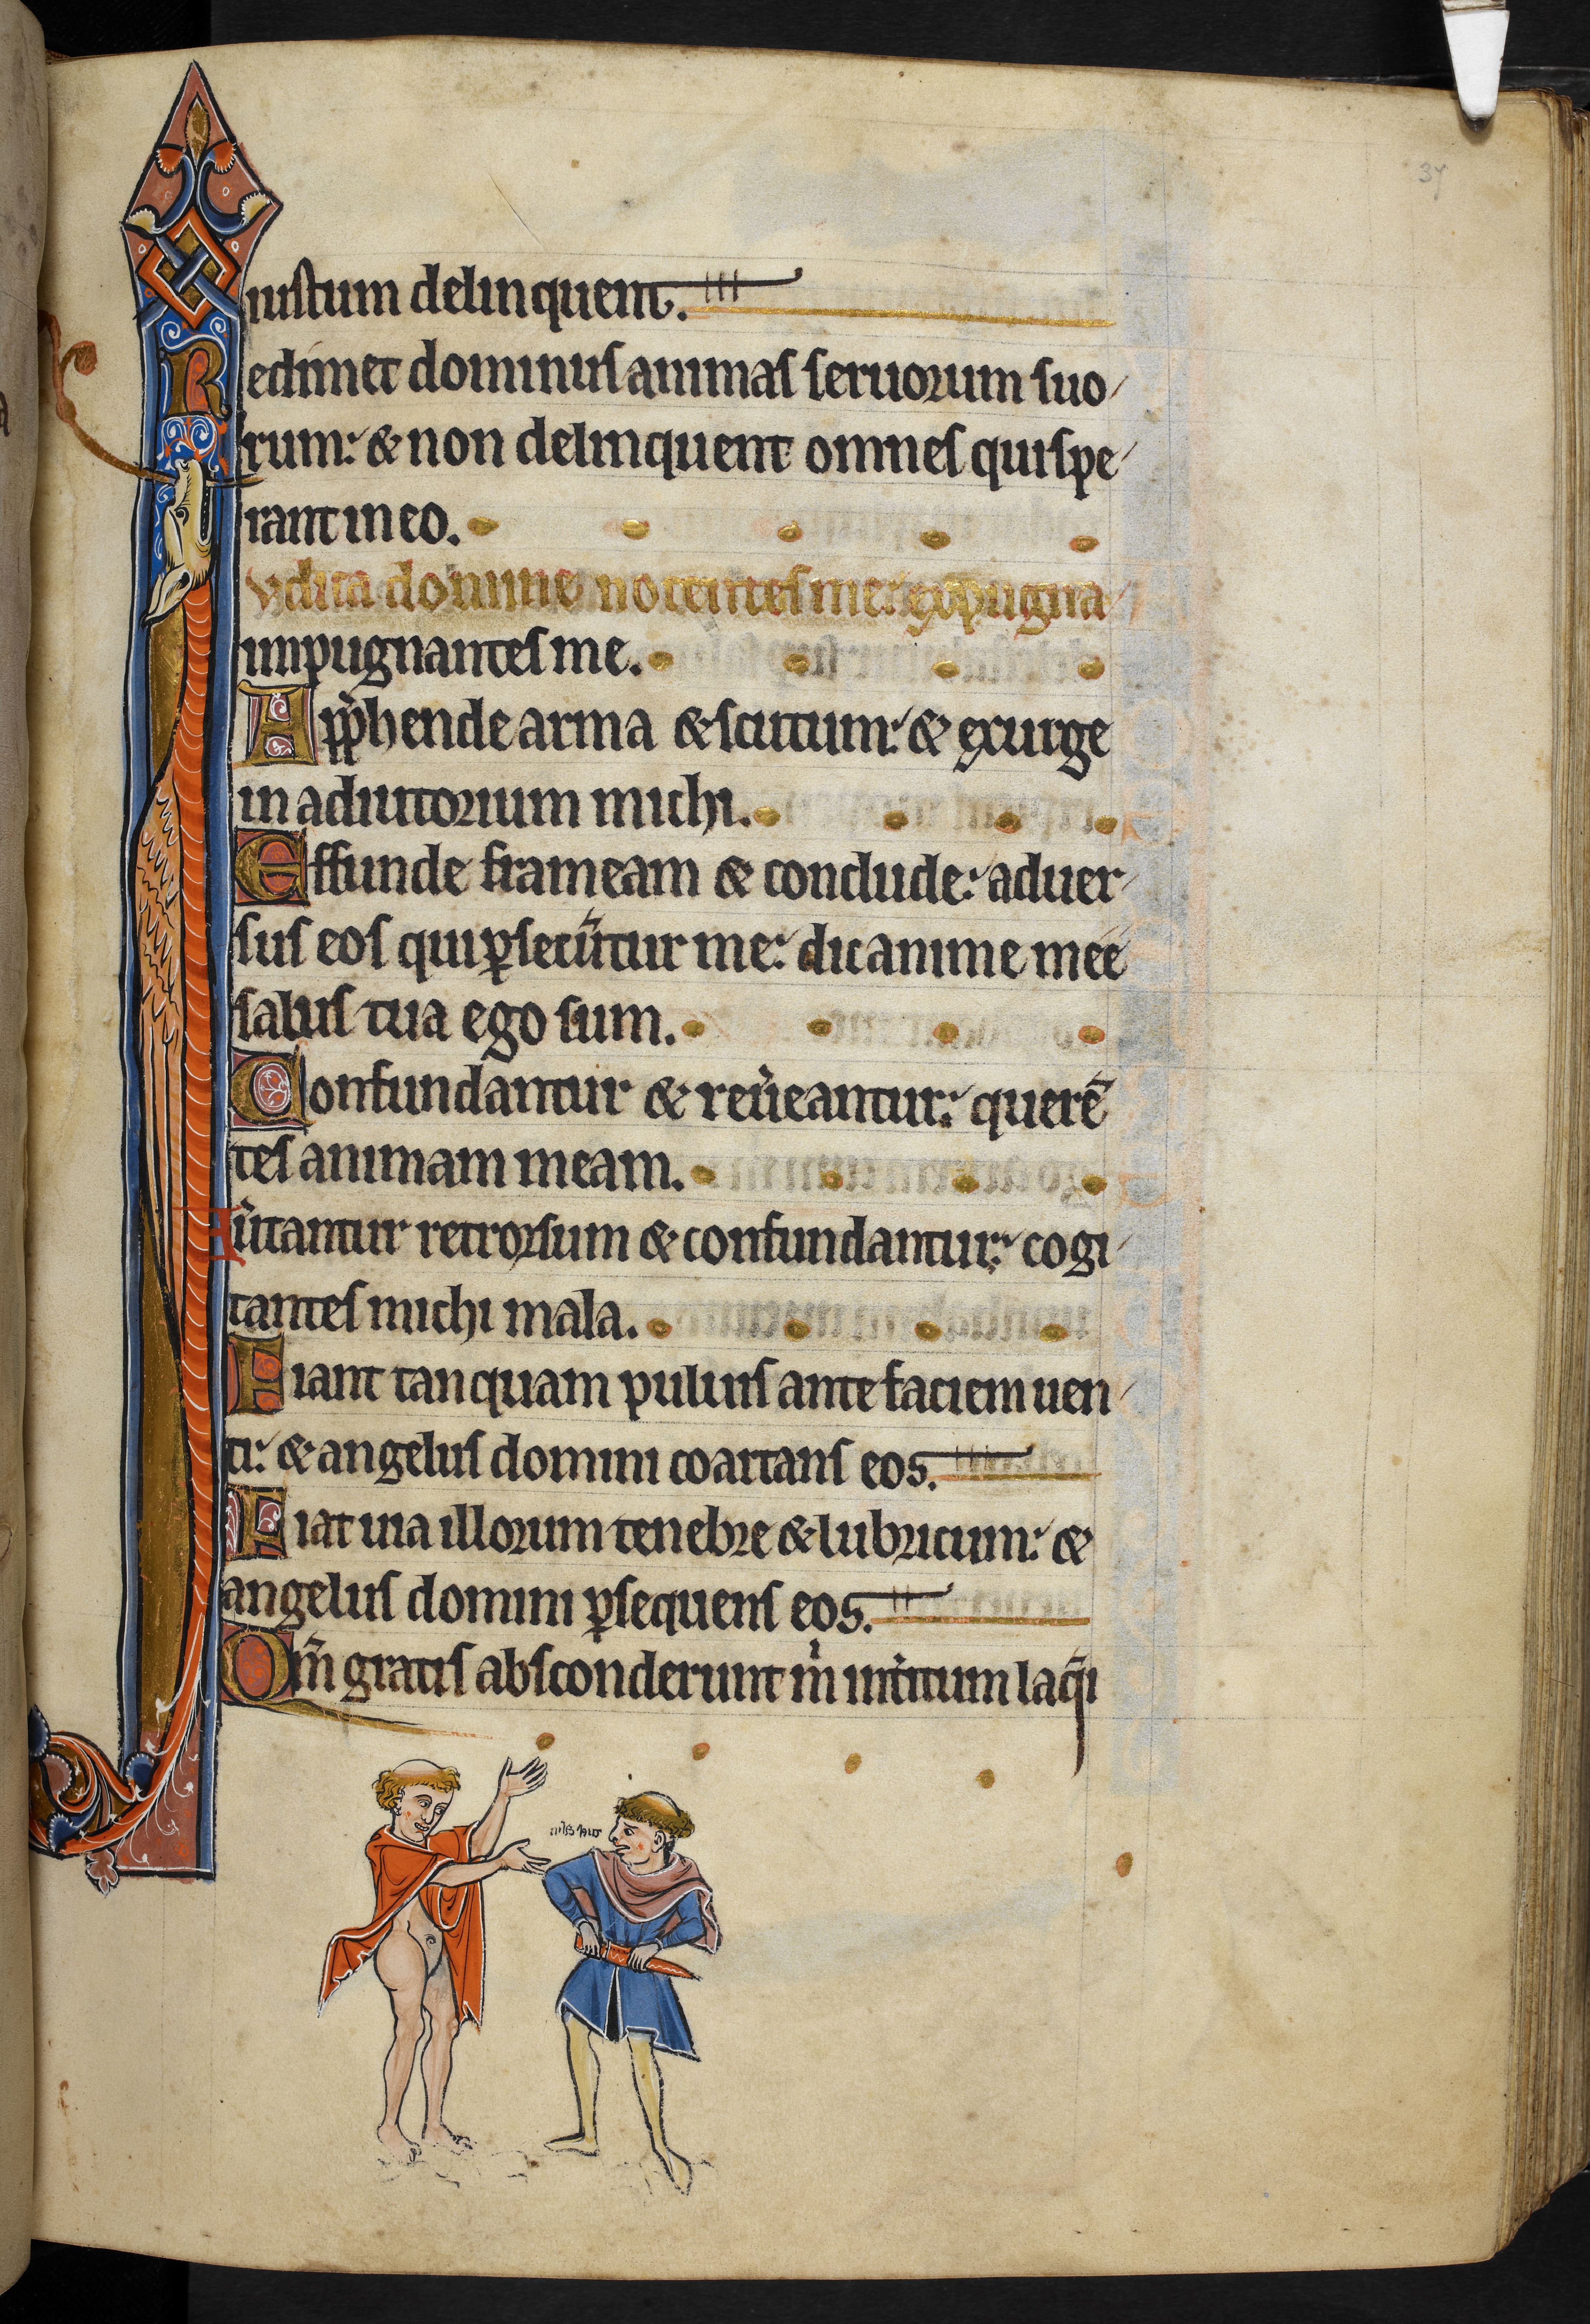 37
iustum delinquent.
Redimet dominus animas seruorum suo
rum: & non delinquent omnes qui spe
rant in eo.
Iudica domine nocentes me: expugna
impugnantes me.
App̓hende arma & scutum: & exurge
in adiutorium michi.
Effunde frameam & conclude: aduer
sus eos qui ꝑsecũtur me: dic anime mee
salus tua ego sum.
Confundantur & reũeantur: querẽ
tes animam meam.
Aũtantur retrorsum & confundantur: cogi
tantes michi mala.
Fiant tanquam puluis ante faciem uen
ti: & angelus domini coartans eos.
Fiat uia illorum tenebre & lubricum: &
angelus domini ꝑsequens eos.
Qm̃ gratis absconderunt m̃ int̓itum laq̃i